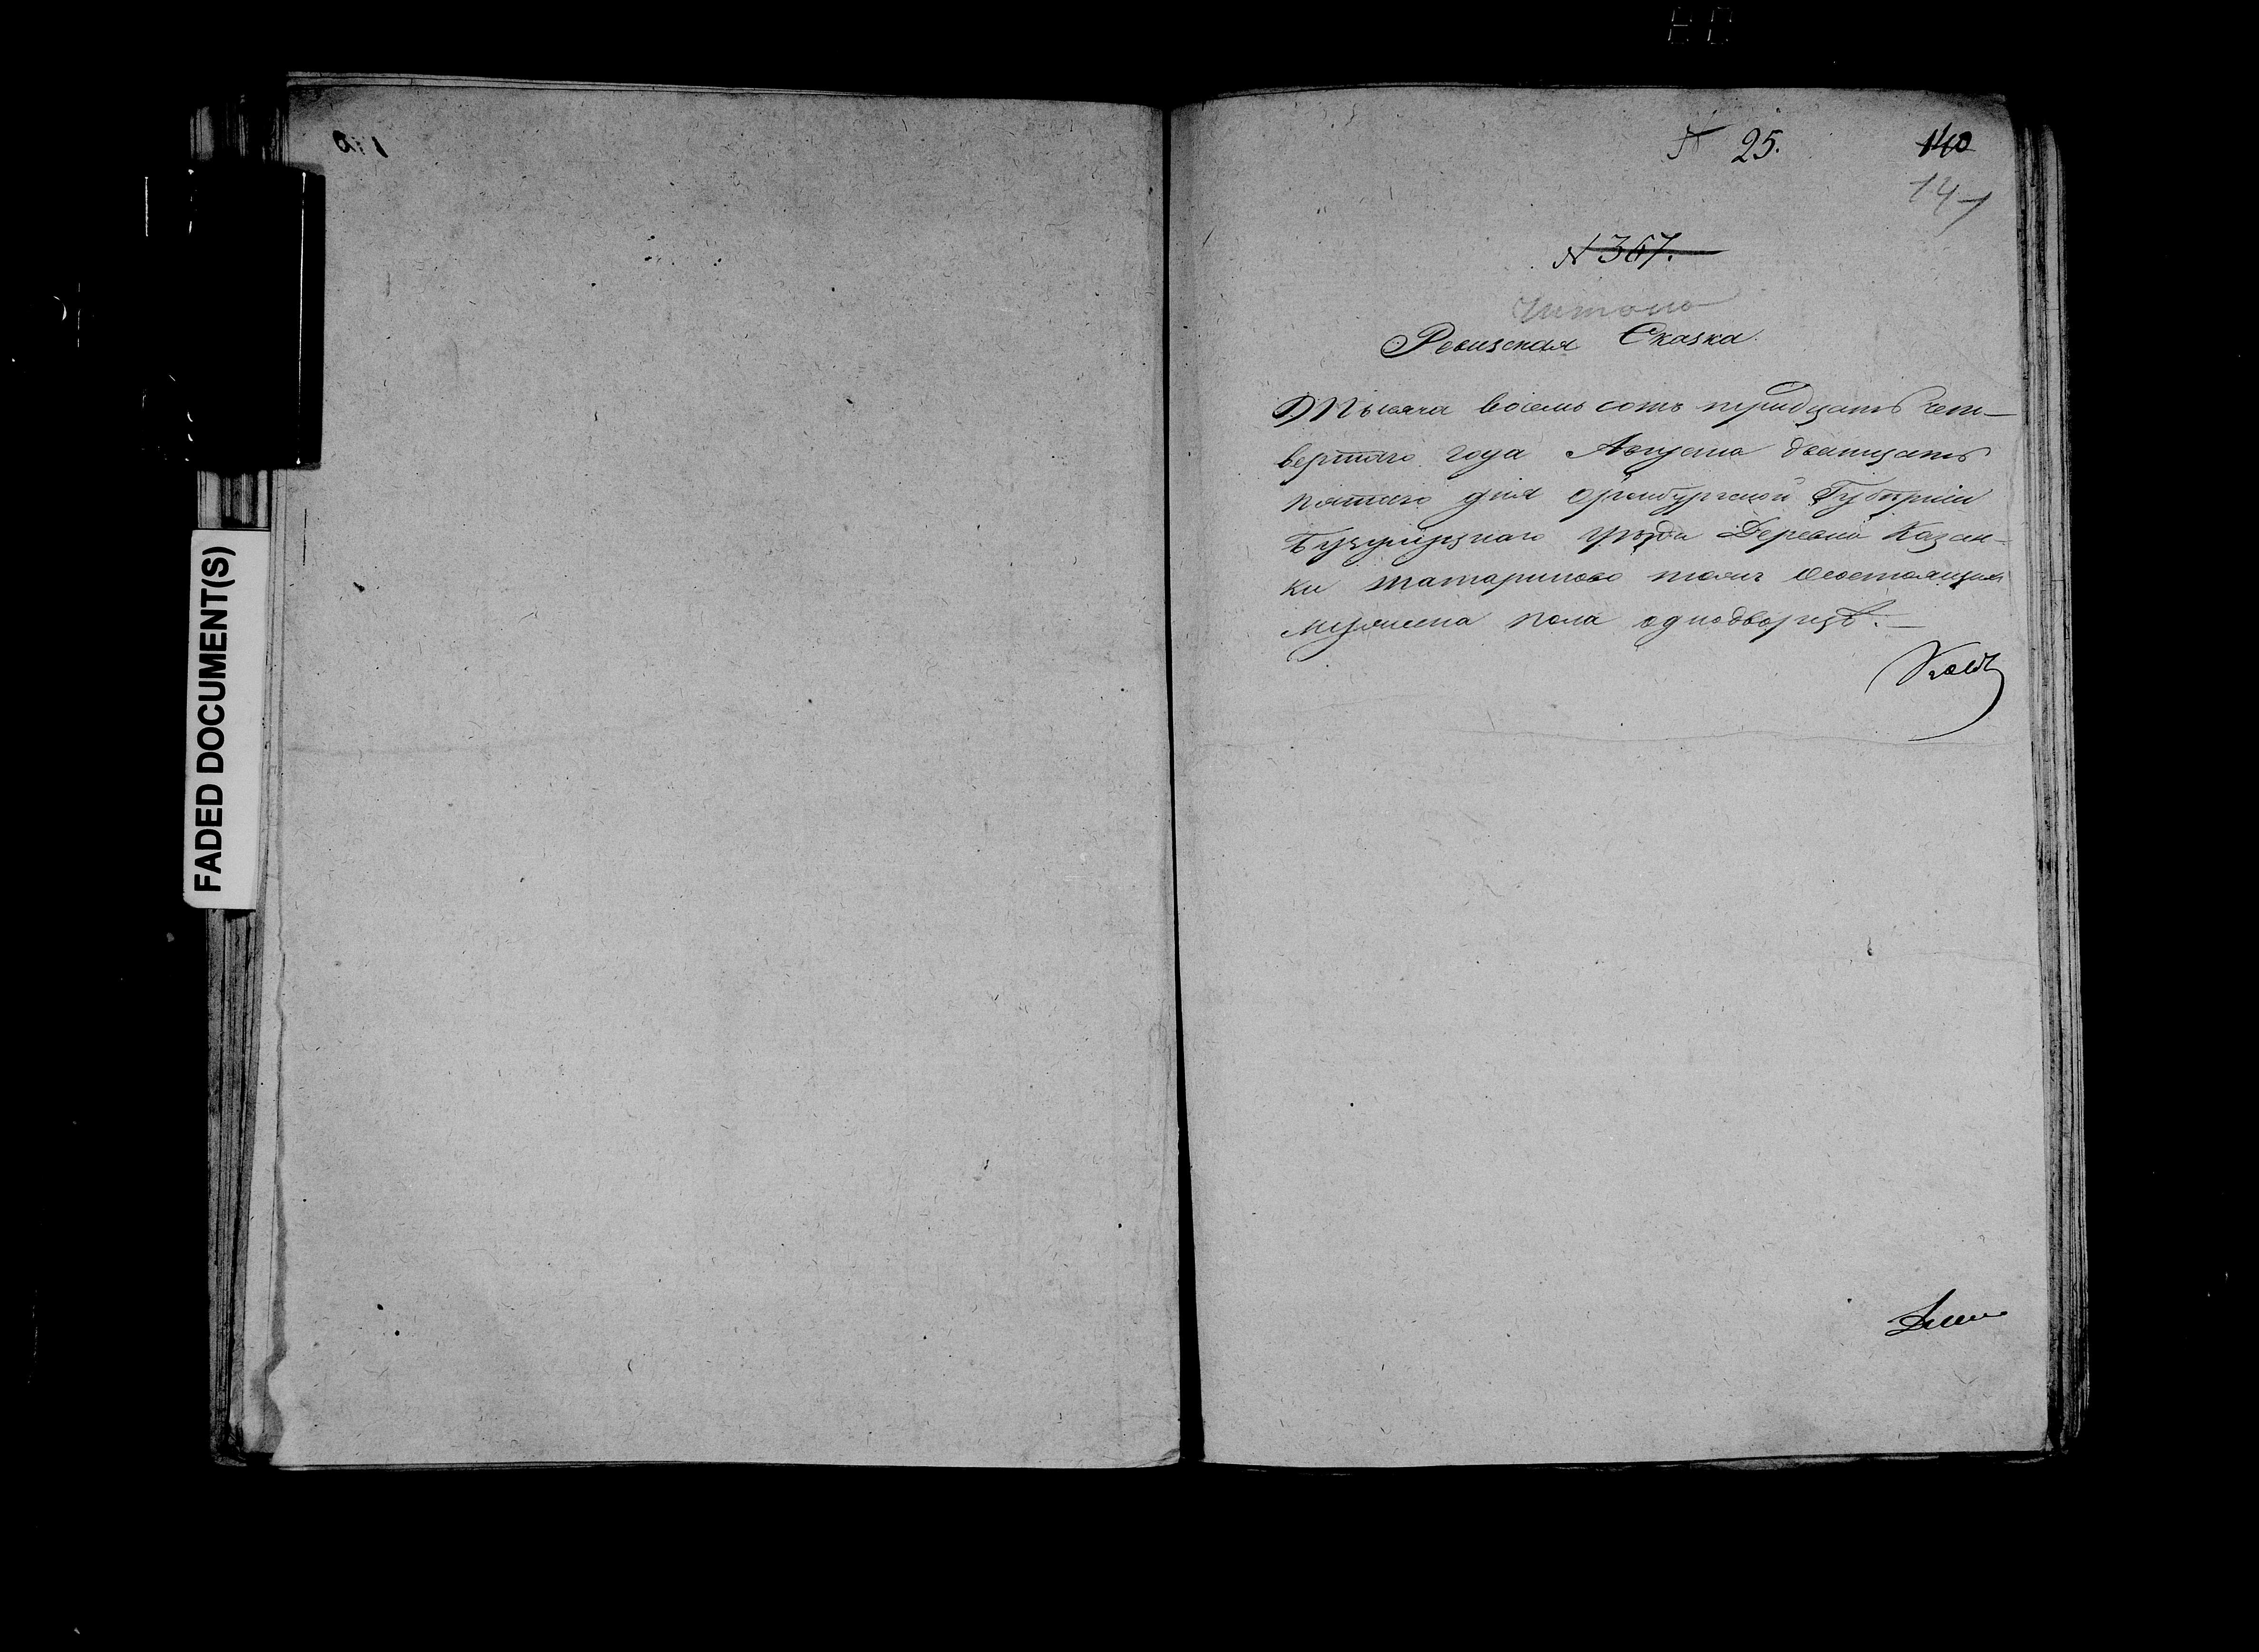 FADED DOCUMENT(S)
№ 25.
140
141
№ 367.
Читано
Ревизская Сказка.
Тысяча восемь сотъ тридцать чет-
вертаго года Августа дватцать
пятаго дня Оренбургской Губернии
Бузулуцкаго уѣзда Деревни Казан-
ки Татариново тожъ о состоящихъ
мужеска пола однодворцѣ.